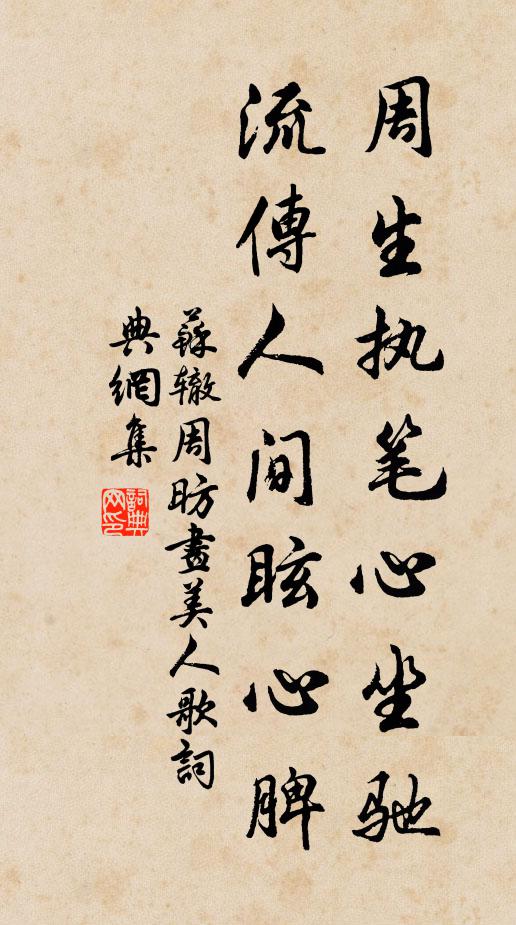 周生执笔心坐驰
流傳人间眩心脾
蘇辙周昉畫美人歌詞
典網集
詞典网印